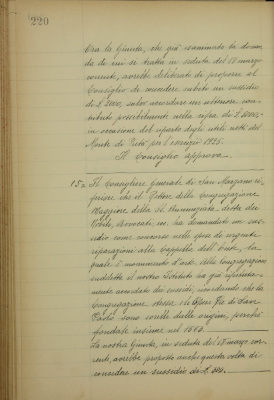 220
Ora la Giunta, che già esaminato la doman-
da di cui si tratta in seduta del 18 marzo
corrente, avrebbe deliberato di proporre al
Consiglio di concedere subito un sussidio
di £. 2000, salvo accordare un ulteriore con-
tributo possibilmente nella cifra di £. 2000,
in occasione del riparto degli utili netti del
Monte di Pietà per l'esercizio 1925.
Il Consiglio approva.
15.a Il Consigliere Generale di San Nazzaro ri-
ferisce che il Rettore della Congregazione
Maggiore della SS. Annunziata detta dei
Nobili, Avvocati, ecc. ha domandato un sus-
sidio come concorso nelle spese di urgenti
riparazioni alla cappella dell'Ente, la
quale è monumento d'arte. Alla Congregazione
suddetta il nostro Istituto ha già
accordato dei sussidi, considerando che la
Congregazione stessa e le Opere Pie di San
Paolo sono sorelle dalla origine, perchè
fondate insieme nel 1563.
La nostra Giunta, in seduta del 18 marzo cor-
rente, avrebbe proposto anche questa volta di
accordare un sussidio di £. 500.